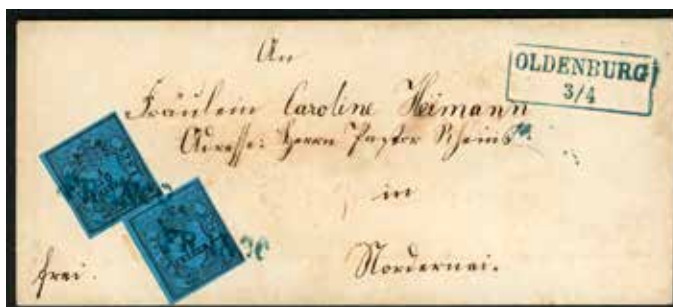 An
OLDENBURG
3/4
Fräulein Caroline Heimann
Adresse: Herrn Pastor Rheins
in
frei.
Nordernei.